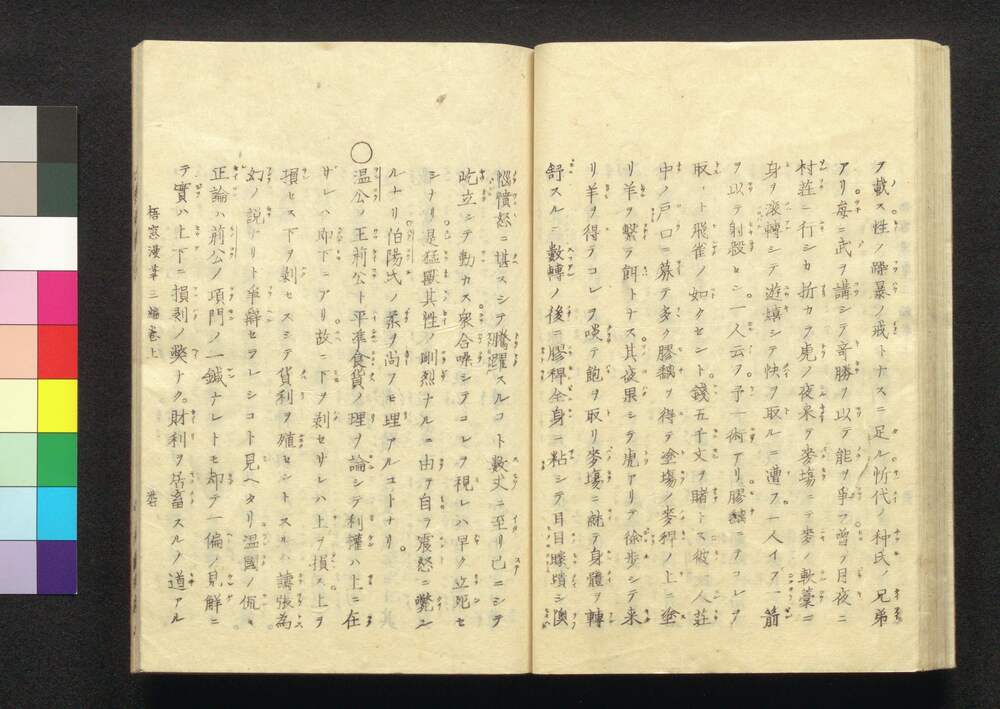 ヲ載ス性ノ躁暴ノ戒トナスニ足ル忻代ノ种氏ノ兄弟
アリ毎ニ武ヲ講シテ奇勝ヲ以テ能ヲ爭フ曽テ月夜ニ
村荘ニ行シカ折カラ虎ノ夜来ヲ麥場ニテ麥ノ軟藁ニ
身ヲ滾轉シテ遊嬉シテ快ヲ取ルニ遭フ一人イフ一箭
ヲ以テ射殺セン一人云フ予一術アリ膠黐ニテコレヲ
取ルト飛雀ノ如クセント錢五千文ヲ賭トス彼ノ人荘
中ノ戸口ニ募テ多ク膠黐ヲ得テ塗場ノ麥稈ノ上ニ塗
リ羊ヲ繋テ餌トナス其夜果シテ虎アリテ徐歩シテ来
リ羊ヲ得テコレヲ啖テ飽ヲ取リ麥場ニ就テ身體ヲ轉
舒スルニ數轉ノ後ニ膠稈全身ニ粘シテ耳目
惱憤怒ニ甚スシテ騰躍スルコト數丈ニ至リ已ニシテ
屹立シテ動カス衆合噪シテコレヲ視レハ早ク立死セ
シナリ是猛獸其性ノ剛烈ナルニ由テ自ラ震怒ニ斃ン
ルナリ伯陽氏ノ柔ヲ尚フモ理アルコトナリ
〇温公ノ王荊公ト平準食貨ノ理ヲ論シテ利權ハ上ニ在
ザレハ即下ニアリ故ニ下ヲ剥セサレハ上ヲ損ス上ヲ
損セス下ヲ剥セスシテ貨利ヲ殖セントスルハ譸張為
幻ノ説ナリト爭辯セラレシコト見ヘタリ温國ノ侃々
正論ハ荊公ノ項門ノ一鍼ナレトモ却テ一偏ノ見解ニ
テ實ハ上下ニ損剥ノ獘ナク財利ヲ居畜スルノ道アル
梧窓漫筆三編巻上